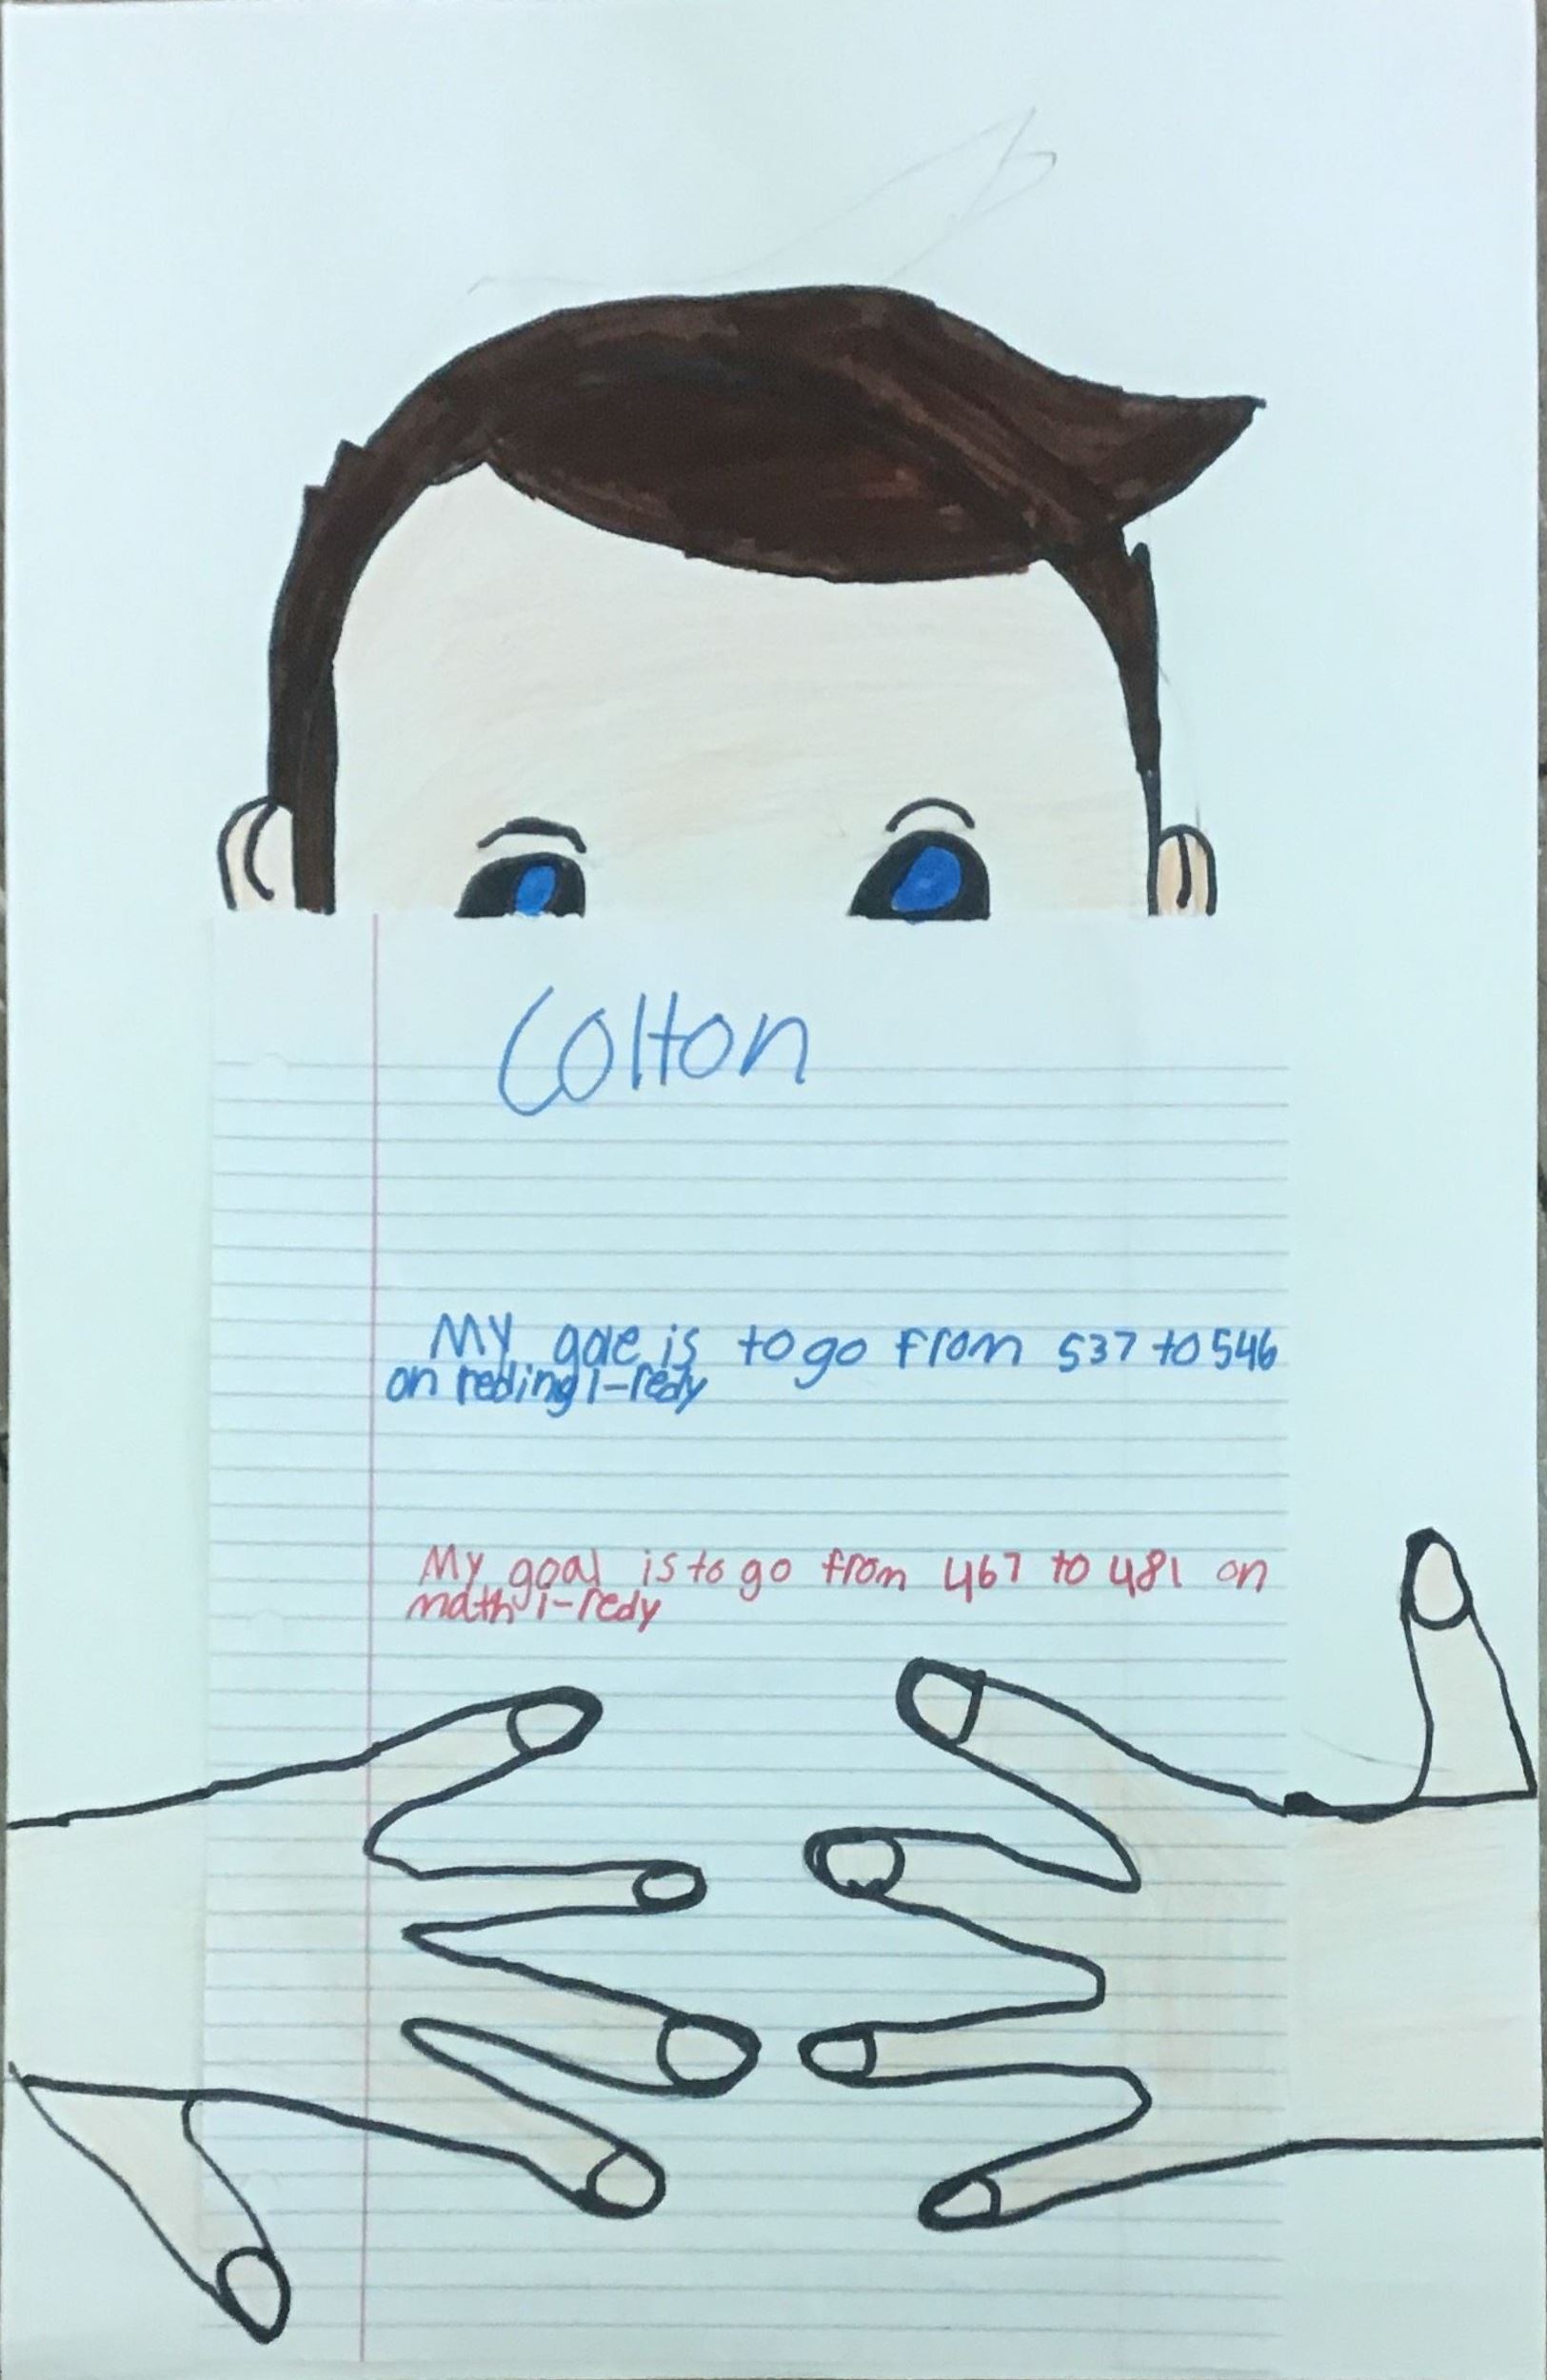 Colton
My gole is to go from 537 to 546
on reding i-redy
My goal is to go from 467 to 481 on
math i-redy